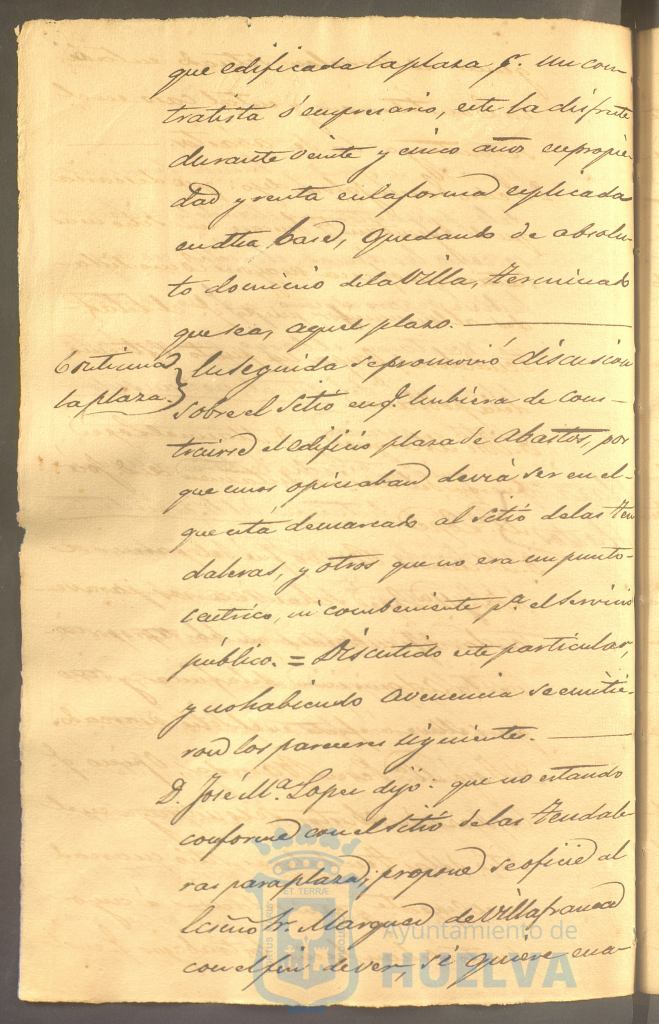 que edificada la plaza pr. un con-
tratista ó empresario, este la disfrute
durante veinte y cinco años en propie-
dad y renta en la forma esplicada
en dha base, quedando de absolu-
to dominio de la Villa, terminado
que sea, aquel plazo.
Continua
la plaza.
En seguida se promovió discusion
sobre el sitio en q. hubiera de cons-
truirse el edificio plaza de Abastos, por
que unos opinaban devia ser en el
que está demarcado al sitio de las Ten
daleras, y otros que no era un punto
centrico, ni combeniente pa. el servicio
público. = Discutido este particular,
y no habiendo avenencia se emitie-
ron los pareceres siguientes.
D. José Ma. Lopez dijo: que no estando
conforme con el sitio de las Tendale
ras para plaza, propone se oficie al
Escmo Sr. Marques de Villafranca
con el fin de ver, si quiere ena-
ET TERRÆ
Ayuntamiento de
HUELVA